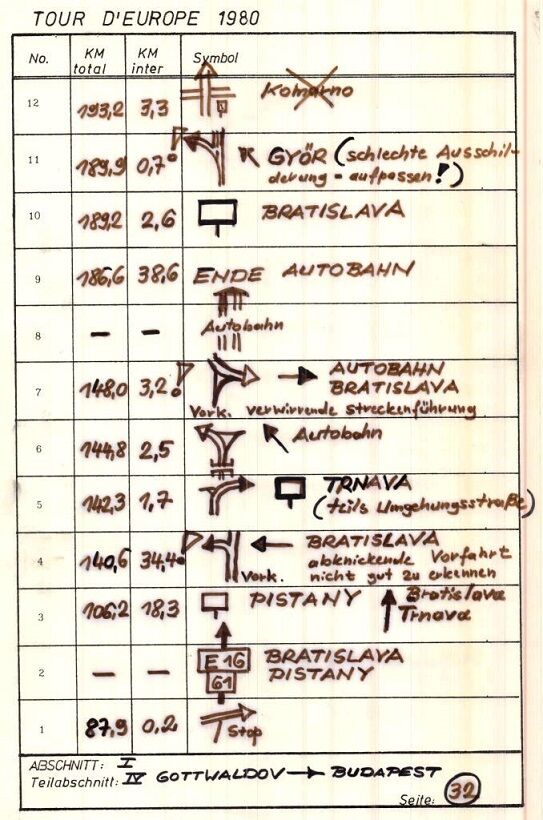 TOUR D'EUROPE 1980
No. KM total KM inter Symbol
12 193,2 3,3 Komarno
11 189,9 0,7 GYÖR (schlechte Ausschil-
derung - aufpassen!)
10 189,2 2,6 BRATISLAVA
9 186,6 38,6 ENDE AUTOBAHN
8 — — Autobahn
7 148,0 3,2 ! AUTOBAHN
BRATISLAVA
Vork. verwirrende streckenführung
6 144,8 2,5 Autobahn
5 142,3 1,7 TRNAVA
(teils Umgehungsstraße)
4 140,6 34,4 BRATISLAVA
abknickende Vorfahrt
Vork. nicht gut zu erkennen
3 106,2 18,3 PISTANY Bratislava
Trnava
2 — — E 16 BRATISLAVA
61 PISTANY
1 87,9 0,2 Stop
ABSCHNITT: I
Teilabschnitt: IV GOTTWALDOV → BUDAPEST
Seite: 32